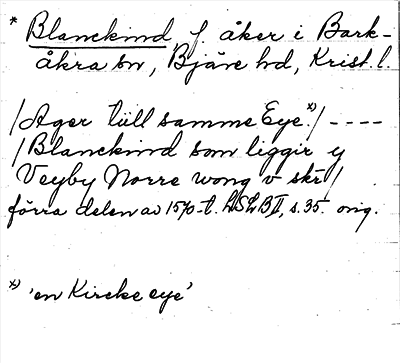 * Blanckind f. åker i Bark-
åkra sn, Bjäre hd, Krist. l.
/Ager tiill samme Eye.x)/ ----
/Blanckind som liggir y
Veyby Norre wong v skr/
förra delen av 1570-t. LSLB II, s. 35. orig.
x) 'en Kircke eye'